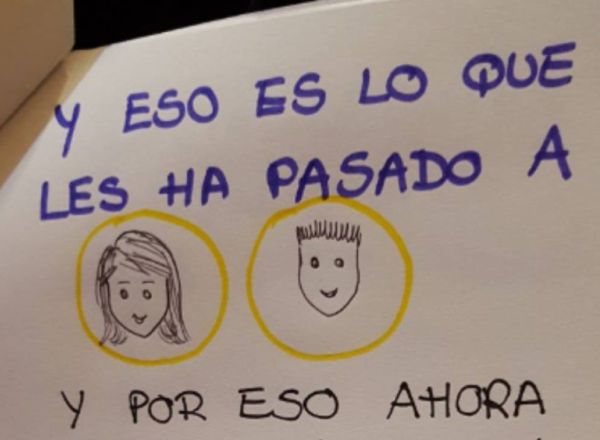 Y ESO ES LO QUE
LES HA PASADO A
Y POR ESO AHORA